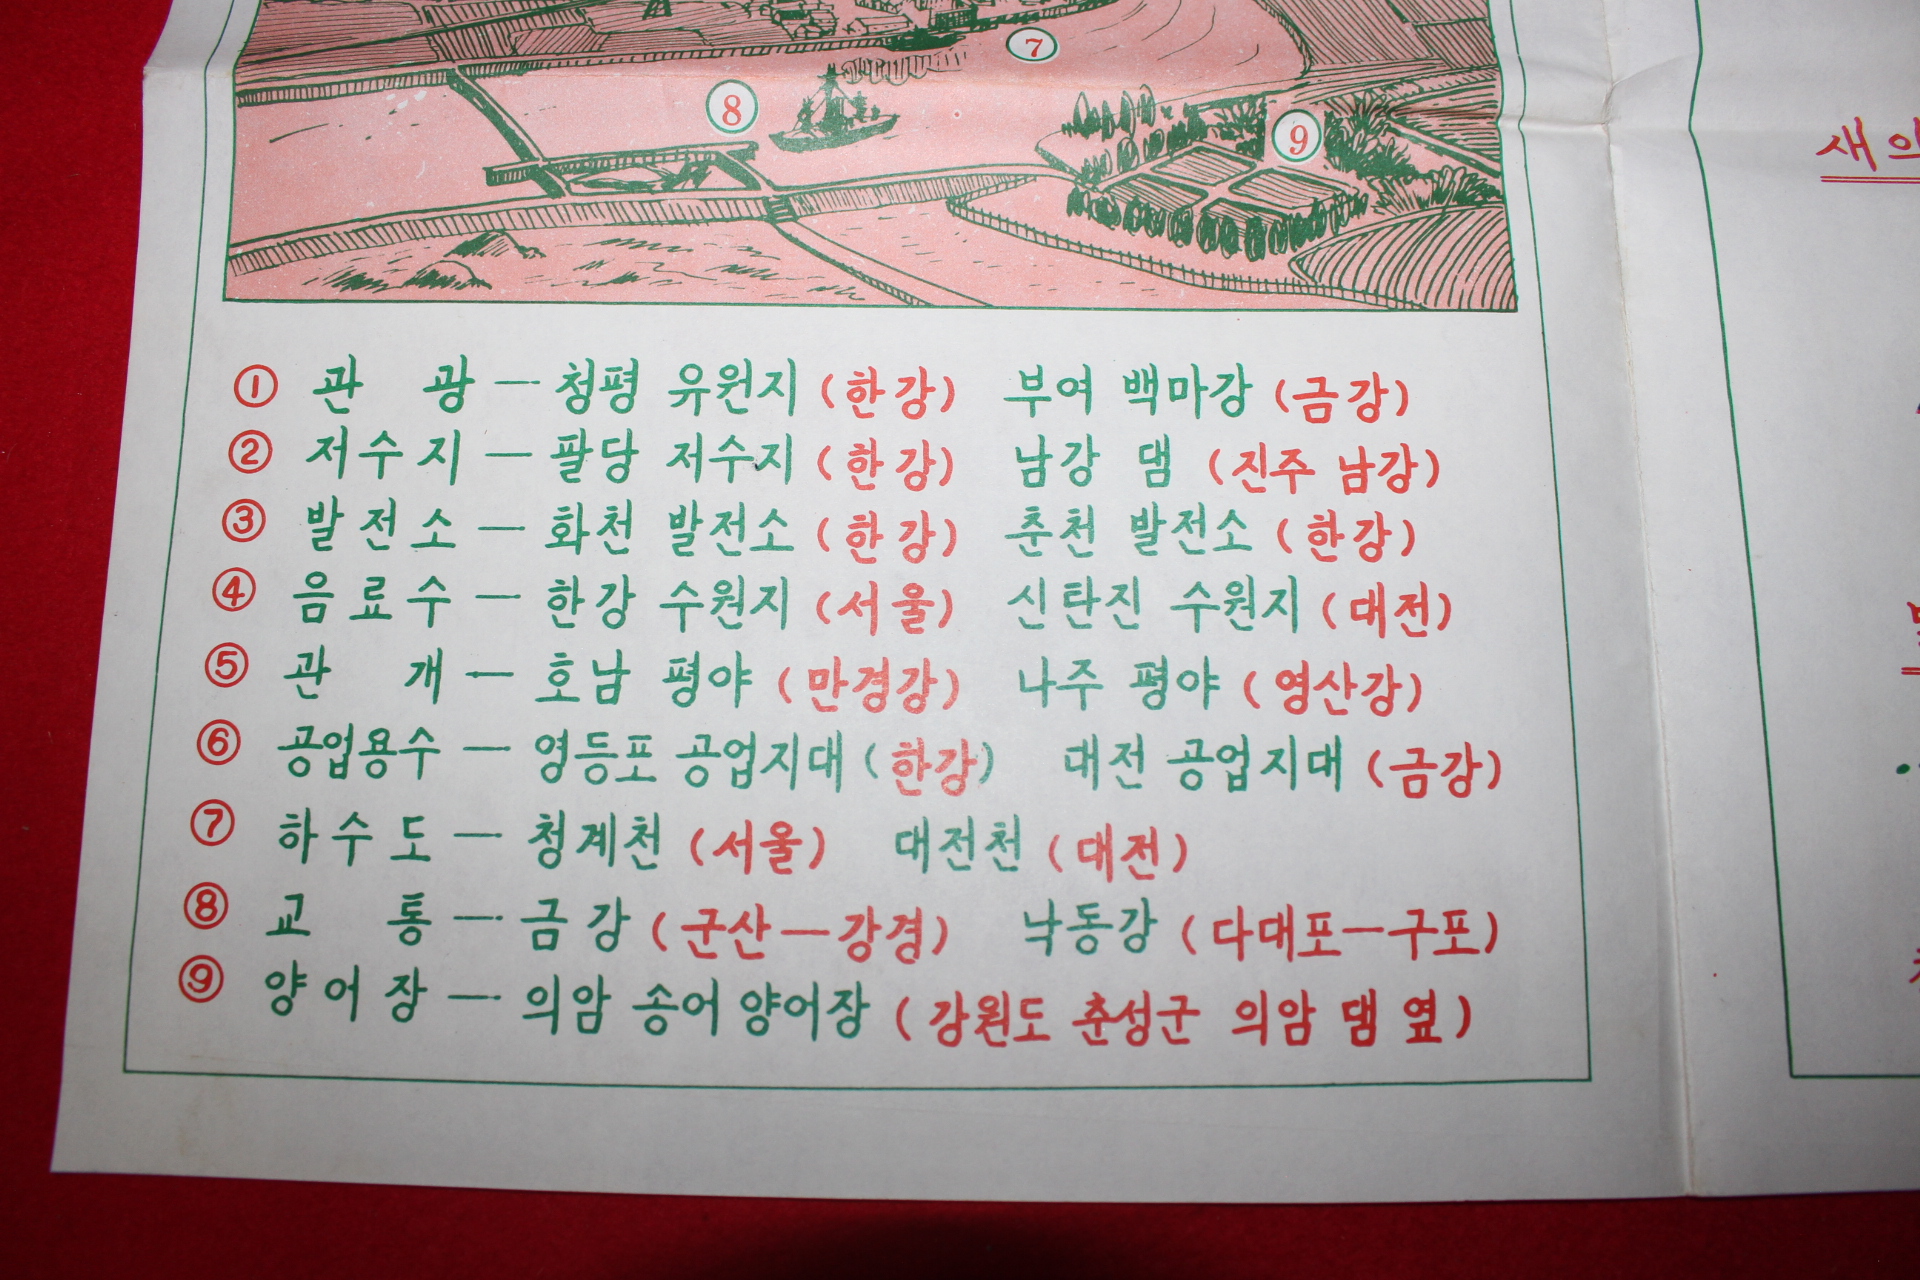 7
8
9
① 관 광 — 청평 유원지 (한강) 부여 백마강 (금강)
② 저수지 — 팔당 저수지 (한강) 남강 댐 (진주 남강)
③ 발전소 — 화천 발전소 (한강) 춘천 발전소 (한강)
④ 음료수 — 한강 수원지 (서울) 신탄진 수원지 (대전)
⑤ 관 개 — 호남 평야 (만경강) 나주 평야 (영산강)
⑥ 공업용수 — 영등포 공업지대 (한강) 대전 공업지대 (금강)
⑦ 하수도 — 청계천 (서울) 대전천 (대전)
⑧ 교 통 — 금강 (군산—강경) 낙동강 (다대포—구포)
⑨ 양어장 — 의암 송어 양어장 (강원도 춘성군 의암 댐 옆)
새의